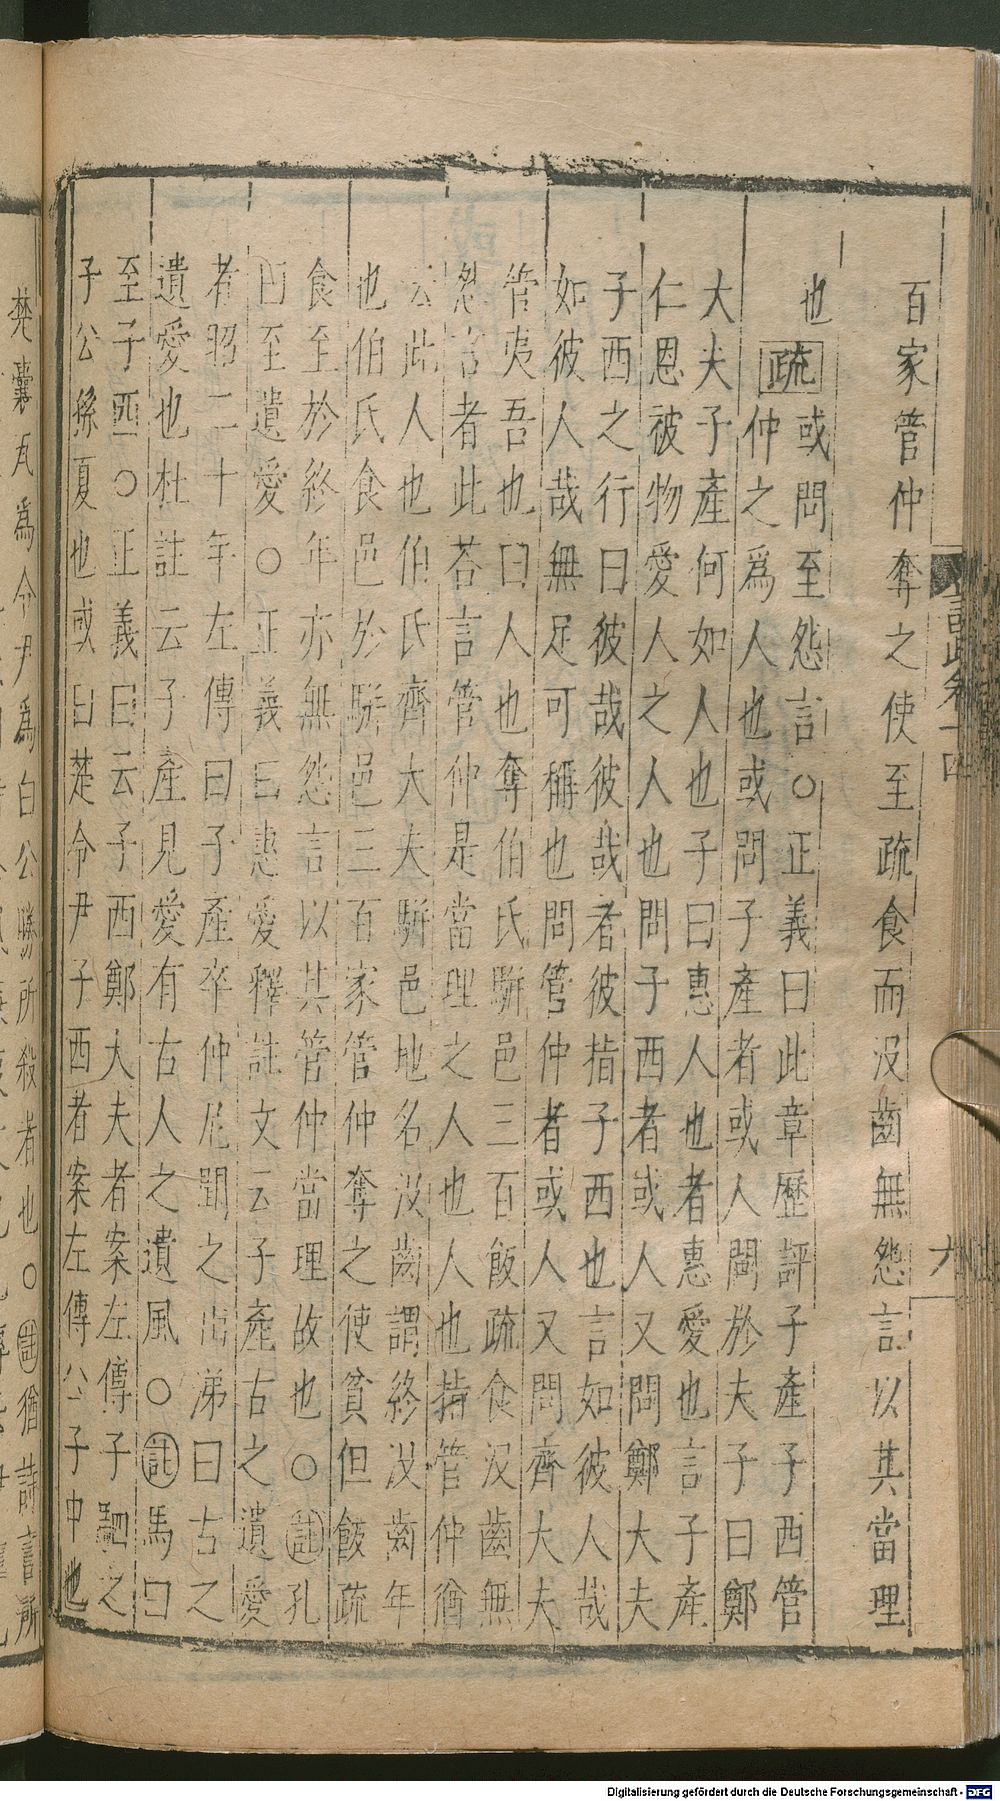 百家管仲奪之使至疏食而没齒無怨言以其當理
也疏或問至怨言○正義曰此章歷評子產子西管
仲之為人也或問子產者或人問於夫子曰鄭
大夫子產何如人也子曰惠人也者惠愛也言子產
仁恩被物愛人之人也問子西者或人又問鄭大夫
子西之行曰彼哉彼哉者彼指子西也言如彼人哉
如彼人哉無足可稱也問管仲者或人又問齊大夫
管夷吾也曰人也奪伯氏駢邑三百飯疏食没齒無
怨言者此荅言管仲是當理之人也人也指管仲猶
云此人也伯氏齊大夫駢邑地名没齒謂終没齒年
也伯氏食邑於駢邑三百家管仲奪之使貧但飯疏
食至於終年亦無怨言以其管仲當理故也○註孔
曰至遺愛○正義曰惠愛釋註文云子產古之遺愛
者昭二十年左傳曰子產卒仲尼聞之出涕曰古之
遺愛也杜註云子產見愛有古人之遺風○註馬曰
至子西○正義曰云子西鄭大夫者案左傳子駟之
子公孫夏也或曰楚令尹子西者案左傳公子申也
疏卷十四
六
楚囊瓦為令尹為白公勝所殺者也○註猶詩言所
Digitalisierung gefördert durch die Deutsche Forschungsgemeinschaft - DFG